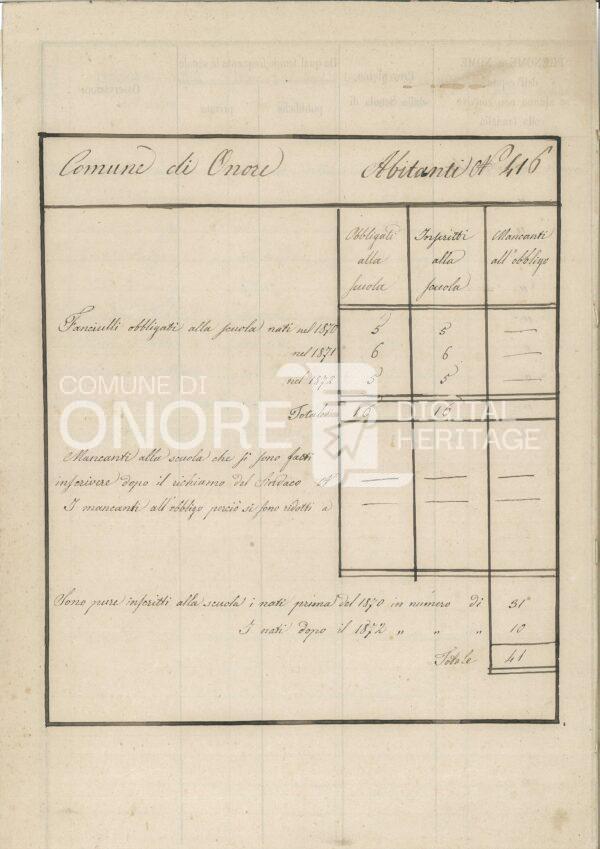 Comune di Onore Abitanti N° 416
Obbligati alla scuola
Inscritti alla scuola
Mancanti all'obbligo
Fanciulli obbligati alla scuola nati nel 1870 5 5 —
nel 1871 6 6 —
nel 1872 5 5 —
Totale 16 16
Mancanti alla scuola che si sono fatti
inscrivere dopo il richiamo del Sindaco N — — —
I mancanti all'obbligo perciò si sono ridotti a — — —
Sono pure inscritti alla scuola i nati prima del 1870 in numero di 31
I nati dopo il 1872 „ „ „ 10
Totale 41
COMUNE DI
ONORE
DIGITAL
HERITAGE